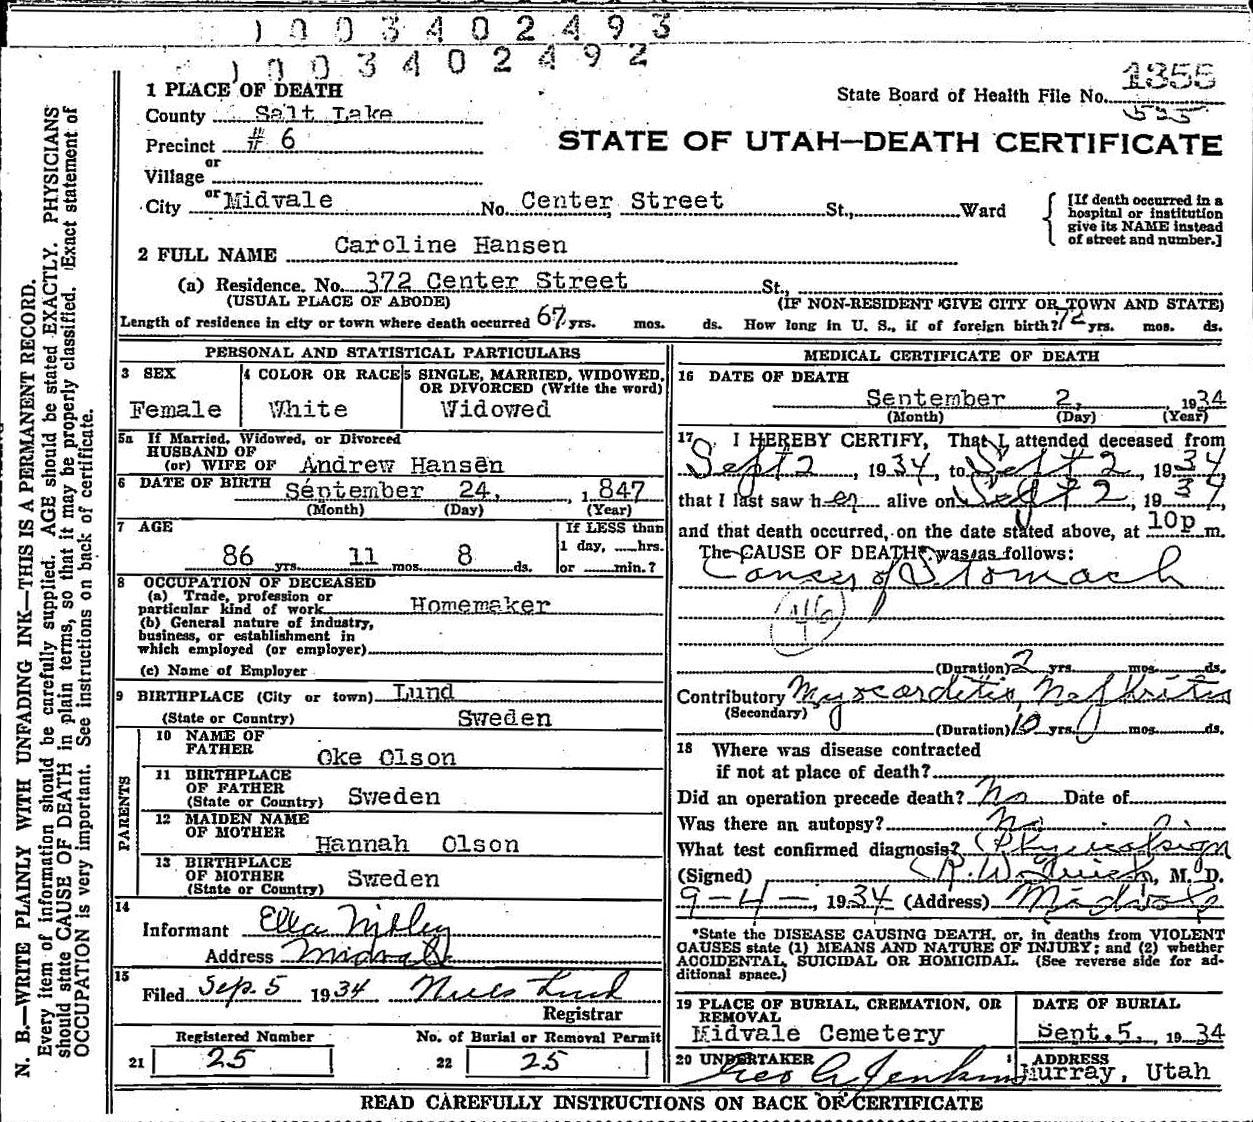 1003402493
1003402492
1 PLACE OF DEATH
State Board of Health File No. 1355
535
County Salt Lake
Precinct #6
STATE OF UTAH—DEATH CERTIFICATE
or
Village
or
City Midvale No. Center Street St., Ward
[If death occurred in a hospital or institution give its NAME instead of street and number.]
2 FULL NAME Caroline Hansen
(a) Residence. No. 372 Center Street St.,
(USUAL PLACE OF ABODE) (IF NON-RESIDENT GIVE CITY OR TOWN AND STATE)
Length of residence in city or town where death occurred 67 yrs. mos. ds. How long in U. S., if of foreign birth? 72 yrs. mos. ds.
PERSONAL AND STATISTICAL PARTICULARS
3 SEX
Female
4 COLOR OR RACE
White
5 SINGLE, MARRIED, WIDOWED,
OR DIVORCED (Write the word)
Widowed
5a If Married, Widowed, or Divorced
HUSBAND OF
(or) WIFE OF Andrew Hansen
6 DATE OF BIRTH September 24, 1847
(Month) (Day) (Year)
7 AGE
86 yrs. 11 mos. 8 ds.
If LESS than
1 day, hrs.
or min.?
8 OCCUPATION OF DECEASED
(a) Trade, profession or
particular kind of work Homemaker
(b) General nature of industry,
business, or establishment in
which employed (or employer)
(c) Name of Employer
9 BIRTHPLACE (City or town) Lund
(State or Country) Sweden
PARENTS
10 NAME OF
FATHER
Oke Olson
11 BIRTHPLACE
OF FATHER
(State or Country) Sweden
12 MAIDEN NAME
OF MOTHER
Hannah Olson
13 BIRTHPLACE
OF MOTHER
(State or Country) Sweden
14
Informant Ella
Address Midvale
15
Filed Sep. 5 1934
Registrar
Registered Number
21 25
No. of Burial or Removal Permit
22 25
MEDICAL CERTIFICATE OF DEATH
16 DATE OF DEATH
September 2, 1934
(Month) (Day) (Year)
17 I HEREBY CERTIFY, That I attended deceased from
Sept 2, 1934, to Sept 2, 1934
that I last saw her alive on Sept 2, 1934
and that death occurred, on the date stated above, at 10p m.
The CAUSE OF DEATH* was as follows:
Cancer of Stomach
46
(Duration) 2 yrs. mos. ds.
Contributory Myocarditis, Nephritis
(Secondary)
(Duration) 10 yrs. mos. ds.
18 Where was disease contracted
if not at place of death?
Did an operation precede death? No Date of
Was there an autopsy? No
What test confirmed diagnosis? Physical sign
(Signed) M. D.
9-4-, 1934 (Address) Midvale
*State the DISEASE CAUSING DEATH, or, in deaths from VIOLENT
CAUSES state (1) MEANS AND NATURE OF INJURY; and (2) whether
ACCIDENTAL, SUICIDAL OR HOMICIDAL. (See reverse side for ad-
ditional space.)
19 PLACE OF BURIAL, CREMATION, OR
REMOVAL
Midvale Cemetery
DATE OF BURIAL
Sept. 5, 1934
20 UNDERTAKER
Geo A Jenkins
ADDRESS
Murray, Utah
READ CAREFULLY INSTRUCTIONS ON BACK OF CERTIFICATE
N. B.—WRITE PLAINLY WITH UNFADING INK—THIS IS A PERMANENT RECORD.
Every item of information should be carefully supplied. AGE should be stated EXACTLY. PHYSICIANS
should state CAUSE OF DEATH in plain terms, so that it may be properly classified. Exact statement of
OCCUPATION is very important. See instructions on back of certificate.